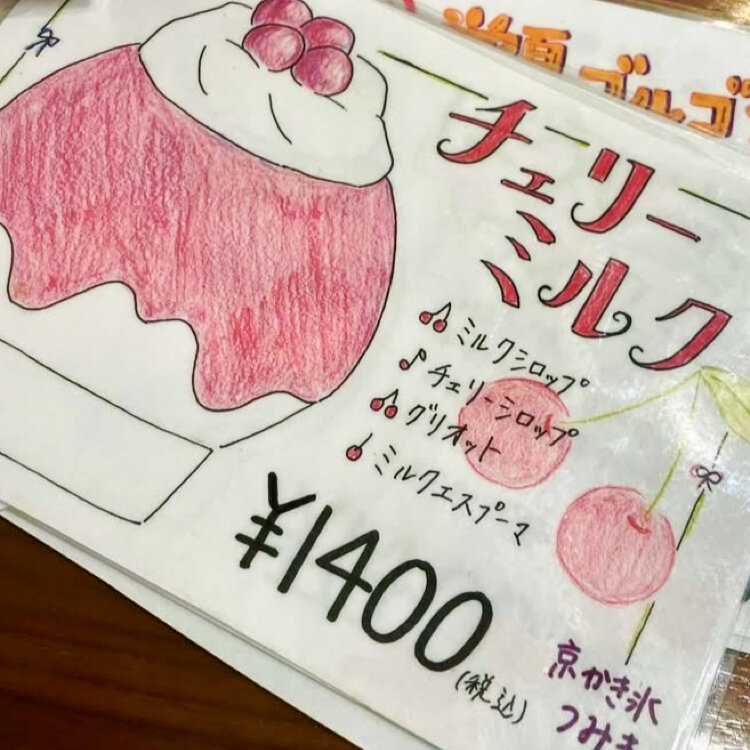 チェリー
ミルク
ミルクシロップ
チェリーシロップ
グリオット
ミルクエスプーマ
¥1400
(税込)
京かき氷
つみき
ゴルゴ